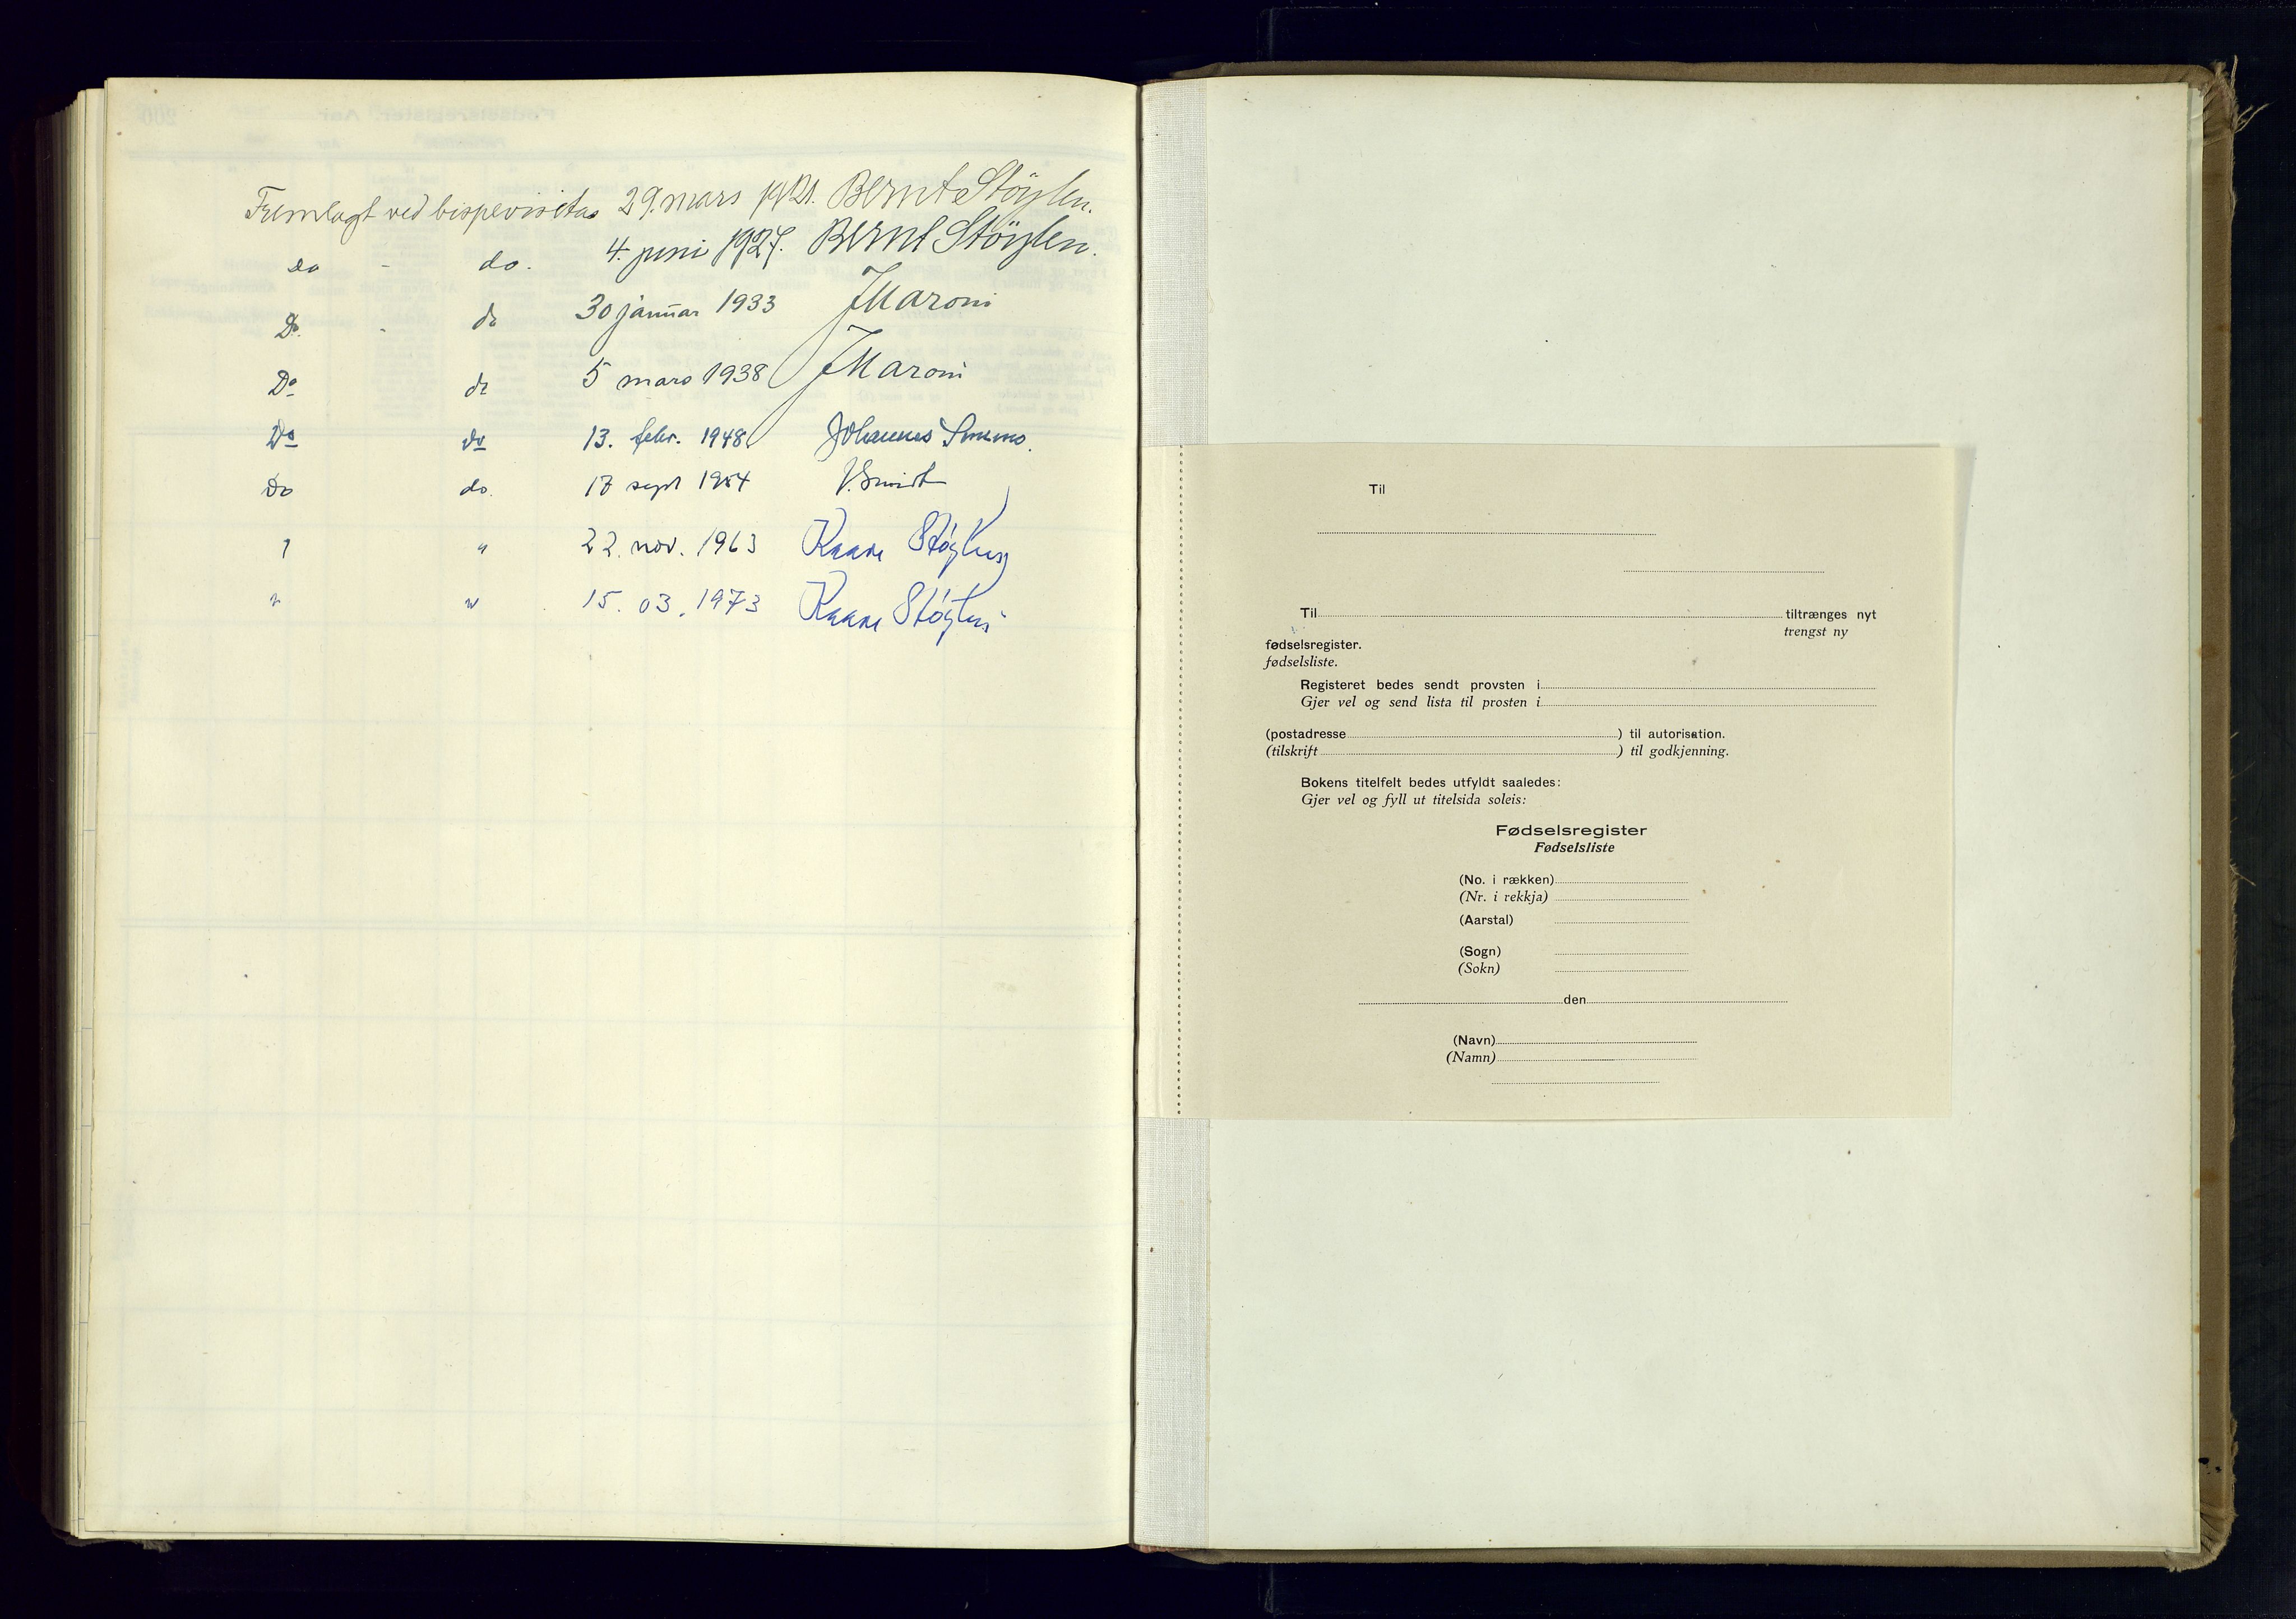 Fremlagt ved bispevisitas 29. mars 1921. Bernt Støylen.
do - do. 4. juni 1927. Bernt Støylen.
Do. - do 30 januar 1933 JMaroni
Do do 5 mars 1938 JMaroni
Do do 13. febr. 1948 Johannes Smemo.
Do do. 17 sept 1954 J. Smidt
" " 22. nov. 1963 Kaare Støylen
" " 15. 03. 1973 Kaare Støylen
Til
Til tiltrænges nyt
trengst ny
fødselsregister.
fødselsliste.
Registeret bedes sendt provsten i
Gjer vel og send lista til prosten i
(postadresse ) til autorisation.
(tilskrift ) til godkjenning.
Bokens titelfelt bedes utfyldt saaledes:
Gjer vel og fyll ut titelsida soleis:
Fødselsregister
Fødselsliste
(No. i rækken)
(Nr. i rekkja)
(Aarstal)
(Sogn)
(Sokn)
den
(Navn)
(Namn)